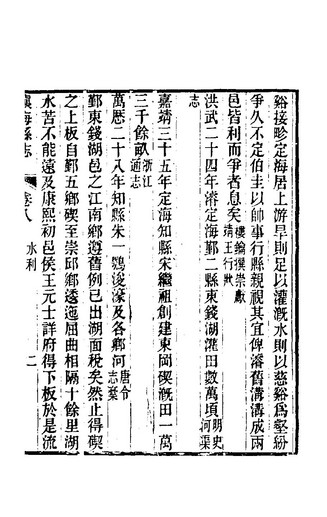 谿接畛定海居上游旱則足以灌漑水則以慈谿爲壑紛
爭久不定伯圭以帥事行縣親視其宜俾濬舊溝溝成兩
邑皆利而爭者息矣樓鑰撰崇獻靖王行狀
洪武二十四年濬定海鄞二縣東錢湖灌田數萬頃明史河渠
志
嘉靖三十五年定海知縣宋繼祖創建東岡碶漑田一萬
三千餘畝浙江通志
萬歷二十八年知縣朱一鶚浚濠及各鄉河唐令志稾
鄞東錢湖邑之江南鄉遵舊例已出湖面稅矣然止得碶
之上板自鄞五鄉碶至崇邱鄉透迤屈曲相隔十餘里湖
水苦不能遠及康熙初邑侯王元士詳府得下板於是流
鎭海縣志
卷八
水利
二